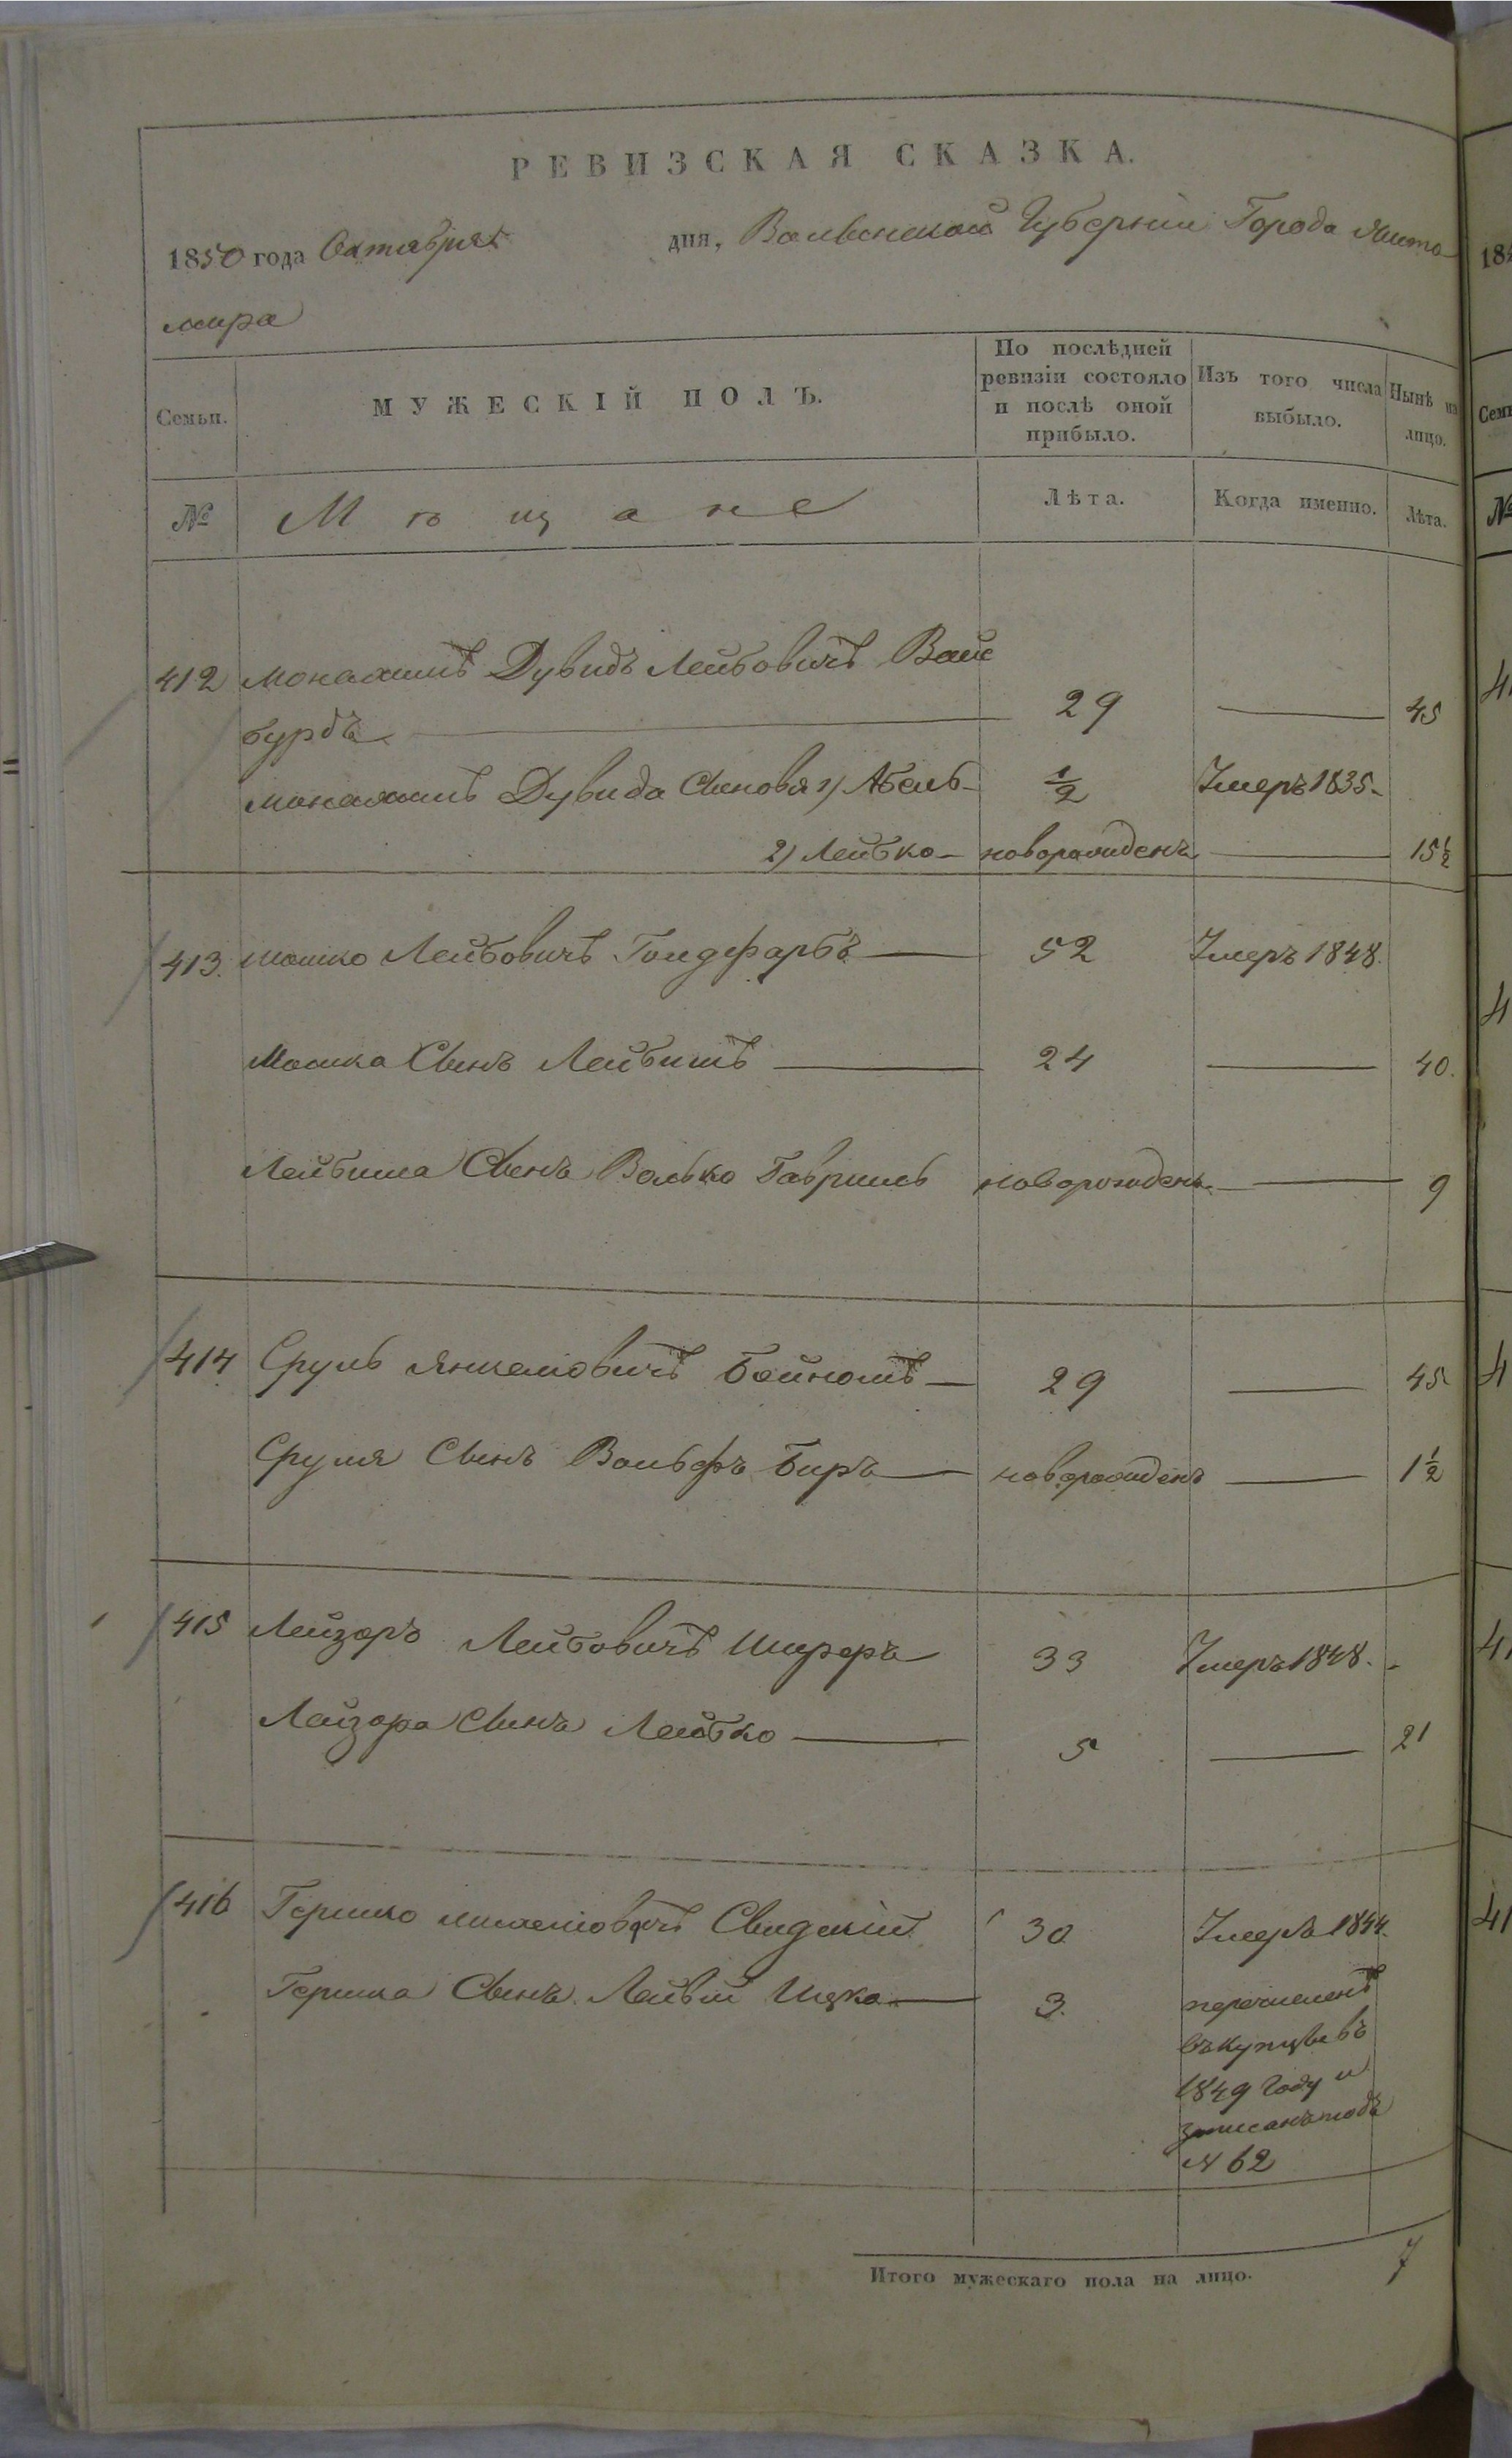 РЕВИЗСКАЯ СКАЗКА.
1850 года Октября дня, Волынской Губернии Города Жито
мира
Семьи. МУЖЕСКІЙ ПОЛЪ. По послѣдней ревизіи состояло и послѣ оной прибыло. Изъ того числа выбыло. Нынѣ на лицо.
№ Мѣщане Лѣта. Когда именно. Лѣта.
412 Монашъ Дувидъ Лейбовичъ Вайс
бурдъ 29 45
Дувида Сыновья 1) Абель ½ Умеръ 1835.
2) Лейбко новорожденъ 15½
413. Мошко Лейбовичъ Голдфарбъ 52 Умеръ 1848.
Мошка Сынъ Лейбишъ 24 40.
Лейбиша Сынъ Волько Гавриль новорожденъ 9
414 Сруль Янкелiовичъ Бойномъ 29 45
Сруля Сынъ Вольфъ Биръ новорожденъ 1½
415 Лейзоръ Лейбовичъ 33 Умеръ 1848.
Лейзора Сынъ Лейбко 5 21
416 Гершко Свидскій 30 Умеръ 1844.
Гершка Сынъ Лейвій Ицко 3. перечисленъ
въ купцы въ
1849 году и
записанъ подъ
№ 62
Итого мужескаго пола на лицо. 7